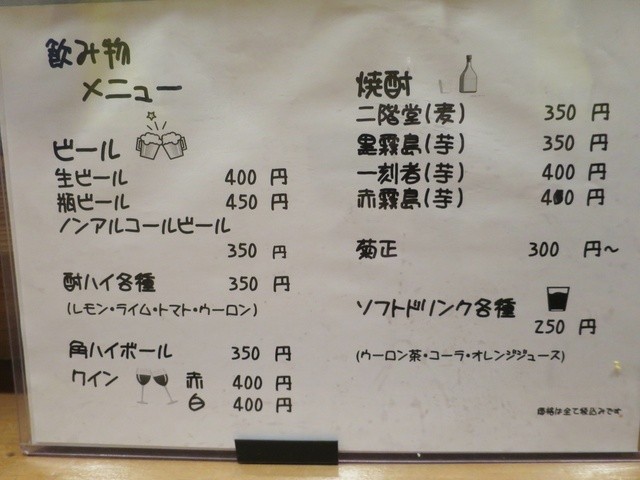 飲み物
メニュー
ビール
生ビール 400 円
瓶ビール 450 円
ノンアルコールビール
350 円
酎ハイ各種 350 円
(レモン・ライム・トマト・ウーロン)
角ハイボール 350 円
ワイン 赤 400 円
白 400 円
焼酎
二階堂(麦) 350 円
黒霧島(芋) 350 円
一刻者(芋) 400 円
赤霧島(芋) 400 円
菊正 300 円～
ソフトドリンク各種
250 円
(ウーロン茶・コーラ・オレンジジュース)
価格は全て税込みです